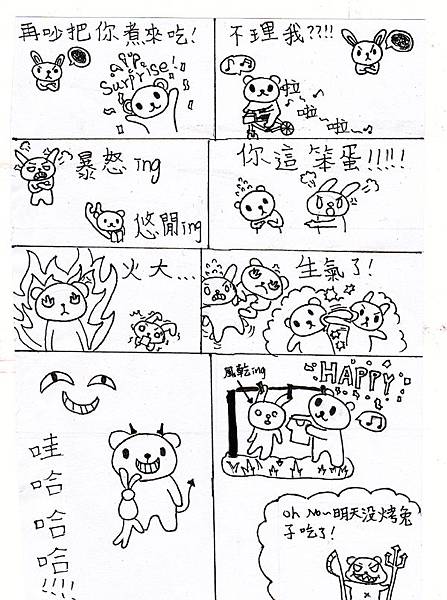 再吵把你煮來吃!
Surprise!
不理我??!!
啦
啦
啦~
暴怒ing
悠閒ing
你這笨蛋!!!!!
火大...
生氣了!
哇哈哈哈!!!!
風乾ing
HAPPY
Oh No~明天沒烤兔
子吃了!